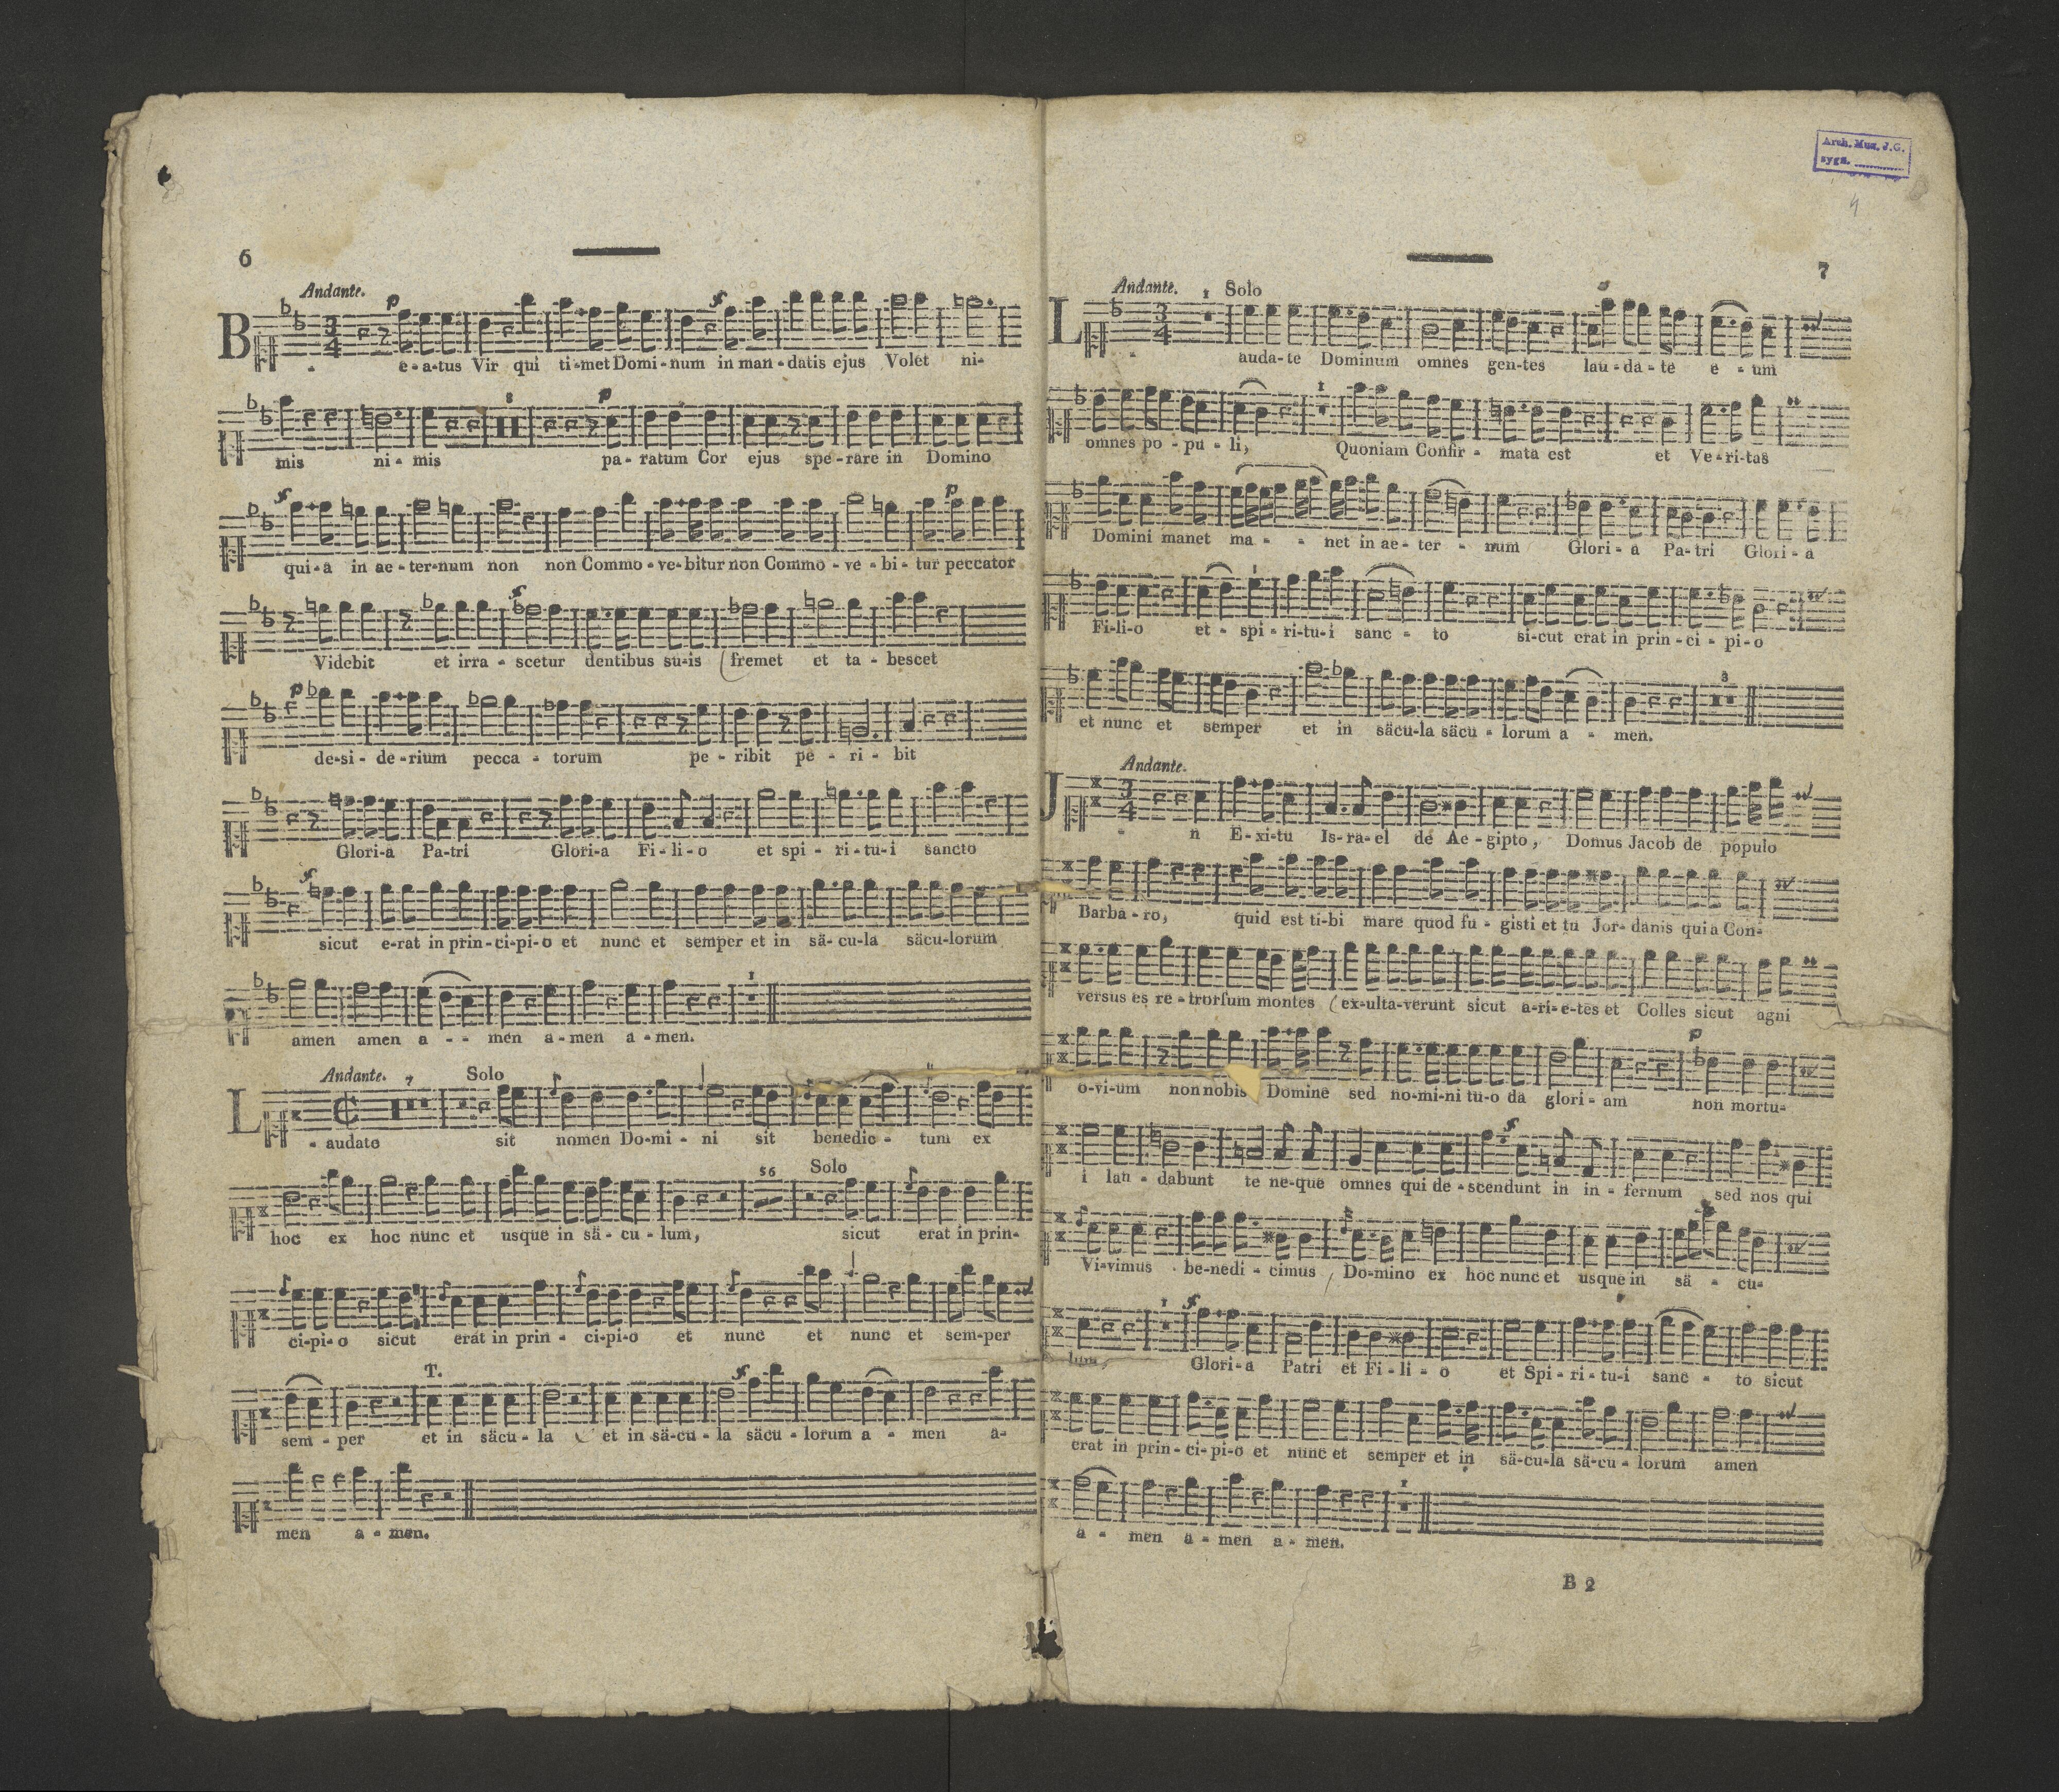 6
Andante.
p
f
B e-a-tus Vir qui ti-met Domi-num in man-datis ejus Volet ni-
p
mis ni-mis pa-ratum Cor ejus spe-rare in Domino
f
p
qui-a in ae-ter-num non non Commo-ve-bitur non Commo-ve-bi-tur peccator
f
Videbit et irra-scetur dentibus su-is (fremet et ta-bescet
p
de-si-de-rium pecca-torum pe-ribit pe-ri-bit
Glori-a Pa-tri Glori-a Fi-li-o et spi-ri-tu-i sancto
f
sicut e-rat in prin-ci-pi-o et nunc et semper et in sä-cu-la säcu-lorum
1
amen amen a--men a-men a-men.
Andante. 7 Solo
L-audate sit nomen Do-mi-ni sit benedic-tum ex
56 Solo
hoc ex hoc nunc et usque in sä-cu-lum, sicut erat in prin-
ci-pi-o sicut erat in prin-ci-pi-o et nunc et nunc et sem-per
T. f
sem-per et in säcu-la et in sä-cu-la säcu-lorum a-men a-
men a-men.
Arch. Muz. J.G.
sygn.
4
7
Andante. 1 Solo
L-auda-te Dominum omnes gen-tes lau-da-te e-um
1
omnes po-pu-li, Quoniam Confir-mata est et Ve-ri-tas
Domini manet ma--net in ae-ter-num Glori-a Pa-tri Glori-a
Fi-li-o et-spi-ri-tu-i sanc-to si-cut erat in prin-ci-pi-o
3
et nunc et semper et in säcu-la säcu-lorum a-men.
Andante.
J-n E-xi-tu Is-ra-el de Ae-gipto, Domus Jacob de populo
Barba-ro, quid est ti-bi mare quod fu-gisti et tu Jor-danis quia Con-
versus es re-trorsum montes (ex-ulta-verunt sicut a-ri-e-tes et Colles sicut agni
p
o-vi-um non nobis Domine sed no-mi-ni tu-o da glori-am non mortu-
f
i lau-dabunt te ne-que omnes qui de-scendunt in in-fernum sed nos qui
Vi-vimus be-nedi-cimus, Do-mino ex hoc nunc et usque in sä-cu-
1 f
lum, Glori-a Patri et Fi-li-o et Spi-ri-tu-i sanc-to sicut
erat in prin-ci-pi-o et nunc et semper et in sä-cu-la sä-cu-lorum amen
1
a-men a-men a-men.
B 2